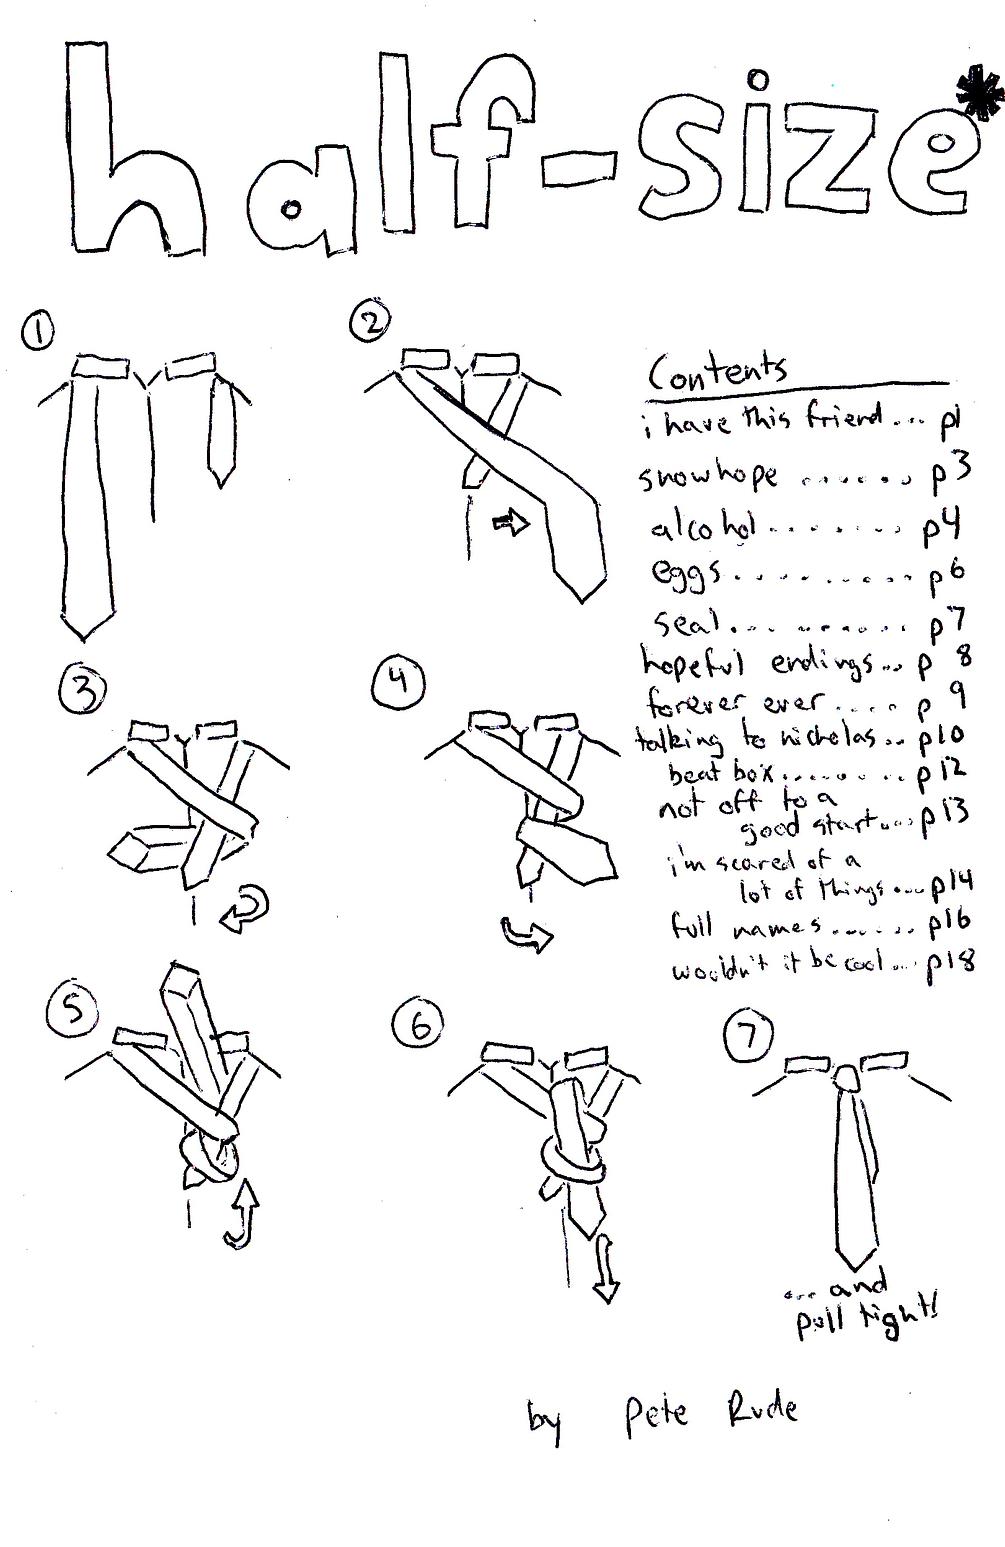 half-size*
1
2
Contents
i have this friend... p1
snowhope ...... p3
alcohol ....... p4
eggs.......... p6
seal.......... p7
hopeful endings... p 8
forever ever .... p 9
talking to nicholas.. p10
beat box........ p12
not off to a
good start.... p13
i'm scared of a
lot of things .... p14
full names ...... p16
wouldn't it be cool... p18
3
4
5
6
7
... and
pull tight!
by Pete Rude